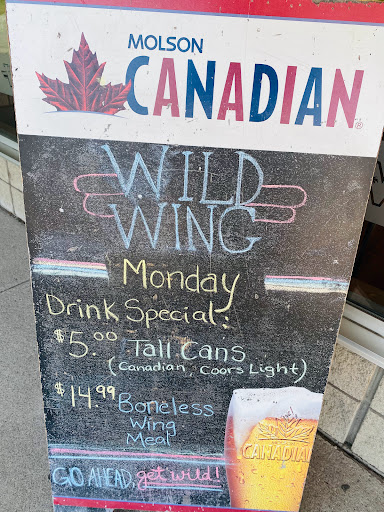 MOLSON
CANADIAN®
WILD
WING
Monday
Drink Special:
$5.00 Tall Cans
(Canadian, Coors Light)
$14.99 Boneless
Wing
Meal
CANADIAN
GO AHEAD, get wild!